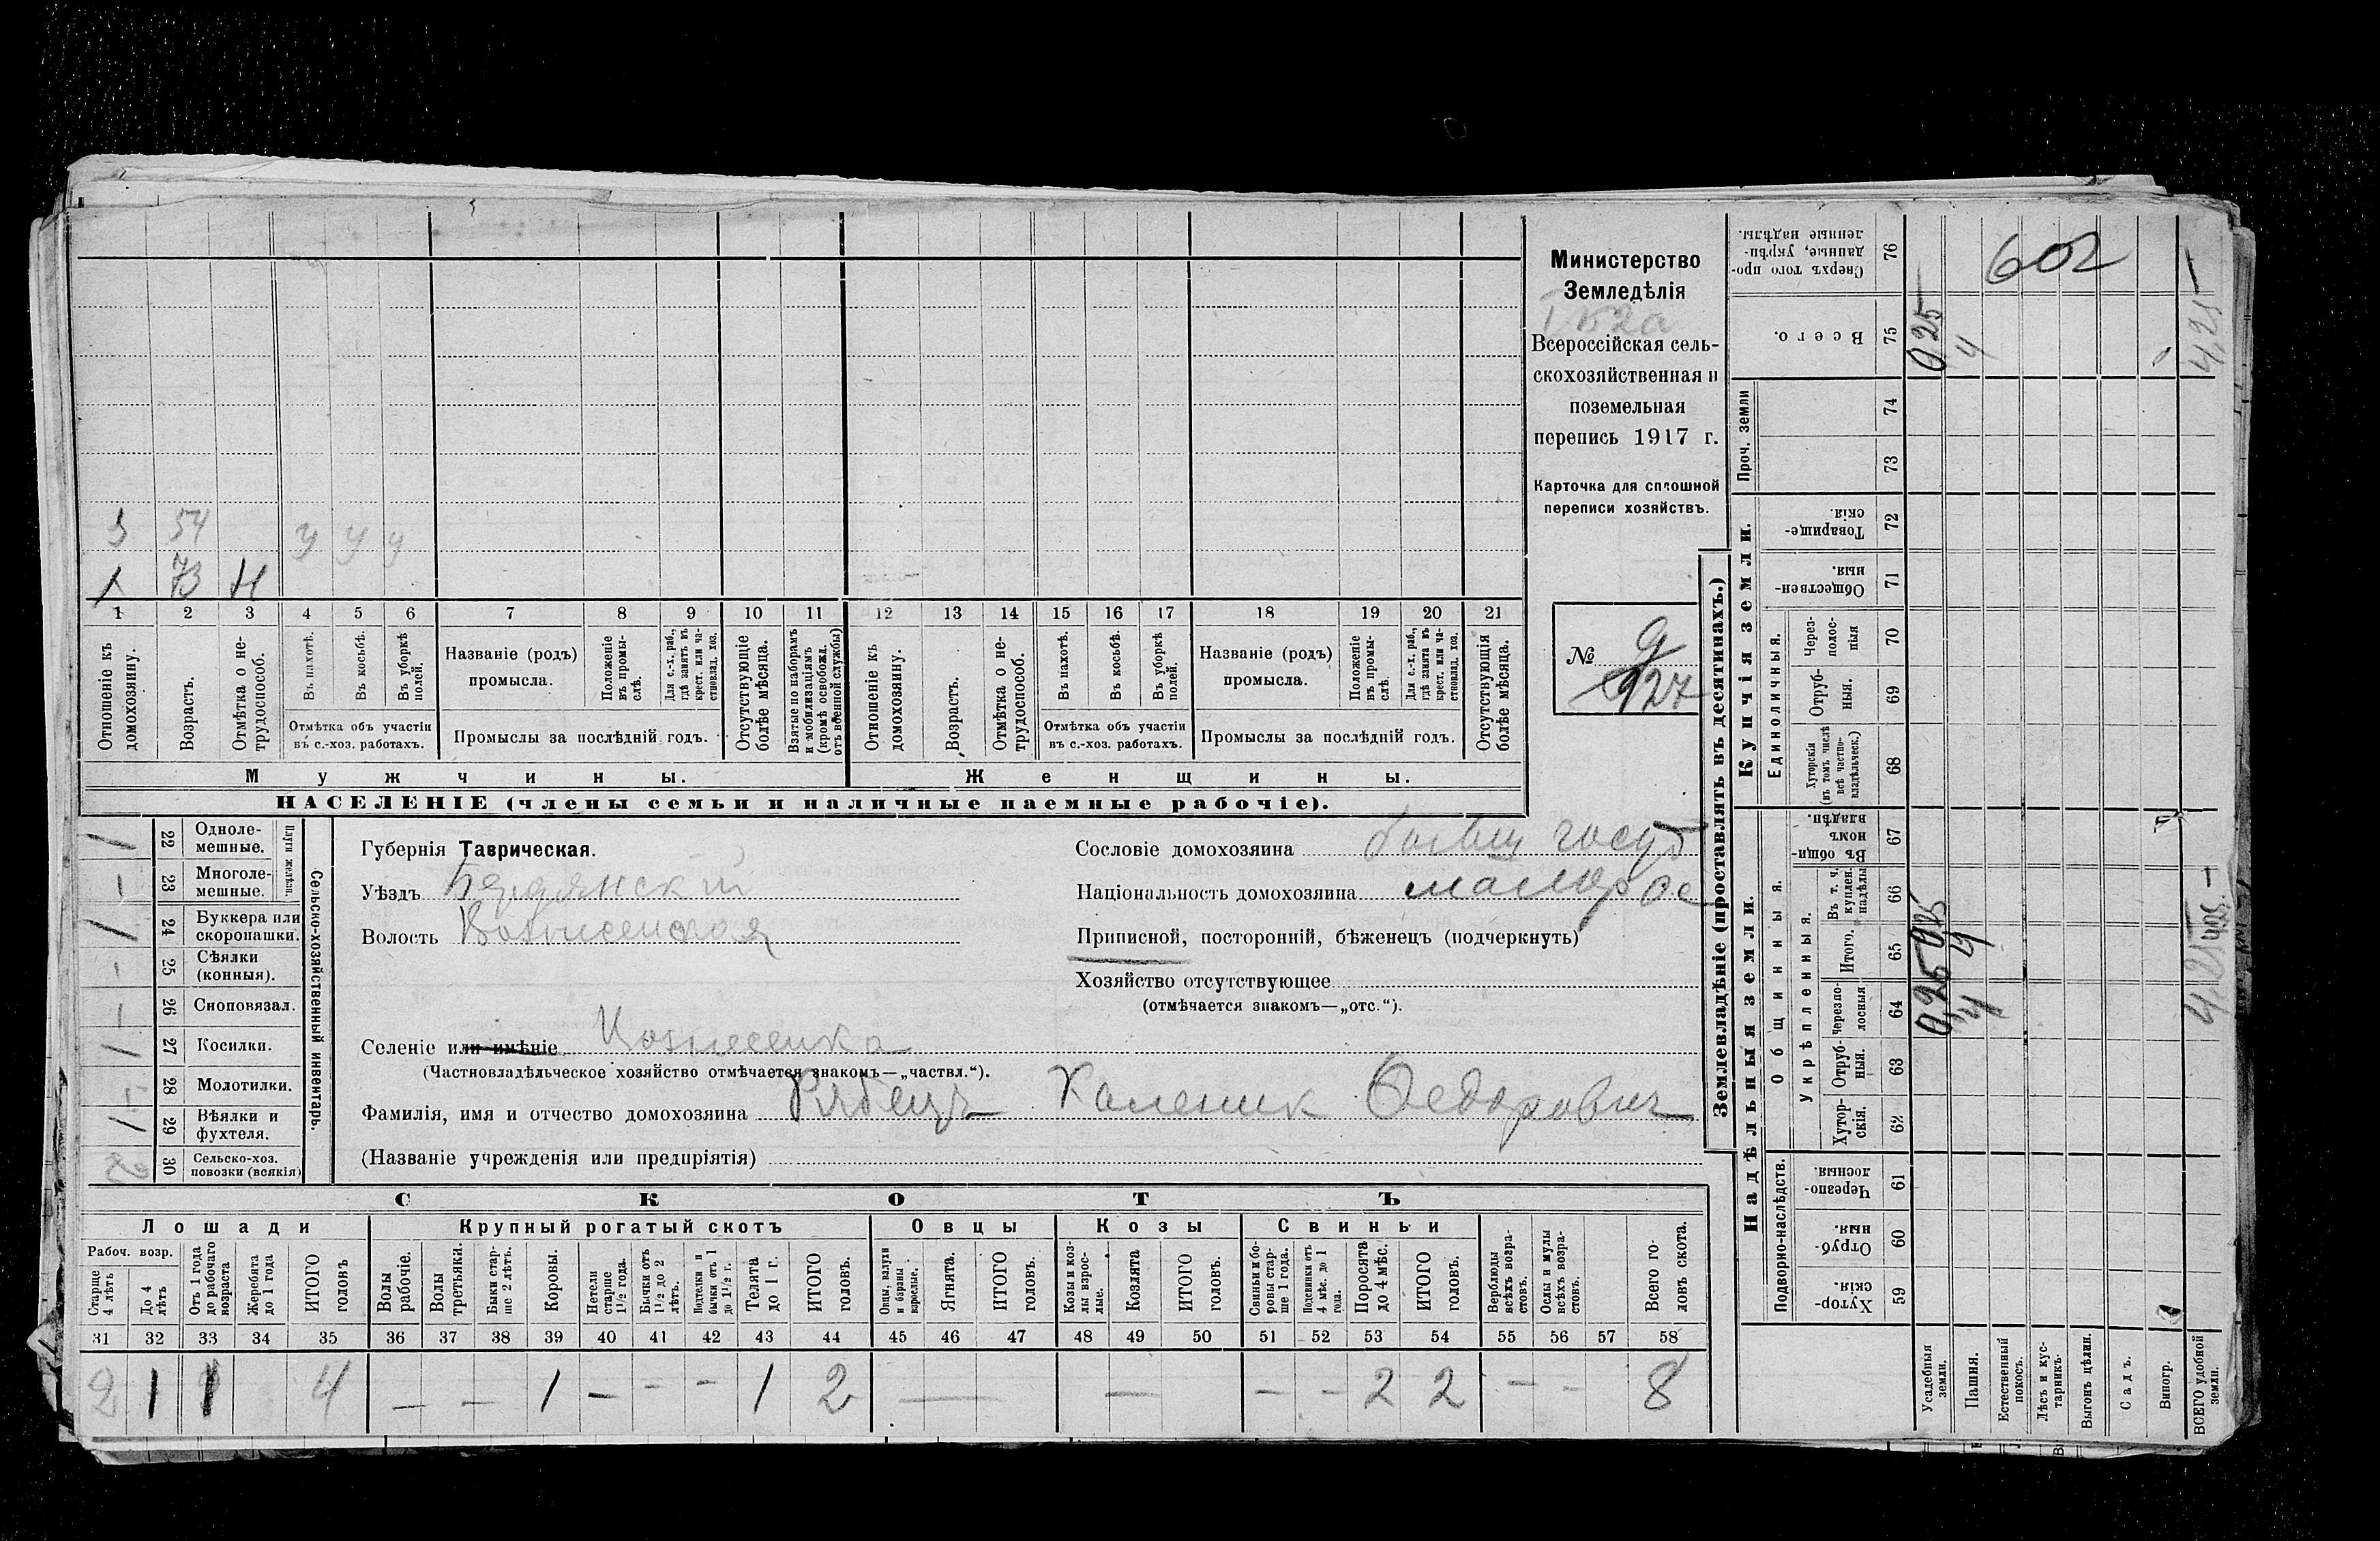 Министерство
Земледѣлія
Всероссійская сель-
скохозяйственная и
поземельная
перепись 1917 г.
Карточка для сплошной
переписи хозяйствъ.
№ 9
927
З 54 У У У
1 73 Н
1 2 3 4 5 6 7 8 9 10 11 12 13 14 15 16 17 18 19 20 21
Отношеніе къ домохозяину.
Возрастъ.
Отмѣтка о не-трудоспособ.
Въ пахотѣ.
Въ косьбѣ.
Въ уборкѣ полей.
Отмѣтка объ участіи
въ с.-хоз. работахъ.
Названіе (родъ)
промысла.
Положеніе въ промы-слѣ.
Для с.-х. раб., гдѣ занятъ въ крест. или ча-стновлад. хоз.
Промыслы за послѣдній годъ.
Отсутствующіе болѣе мѣсяца.
Взятые по наборамъ и мобилизаціямъ (кромѣ освобожд. отъ военной службы)
Отношеніе къ домохозяину.
Возрастъ.
Отмѣтка о не-трудоспособ.
Въ пахотѣ.
Въ косьбѣ.
Въ уборкѣ полей.
Отмѣтка объ участіи
въ с.-хоз. работахъ.
Названіе (родъ)
промысла.
Положеніе въ промы-слѣ.
Для с.-х. раб., гдѣ занята въ крест. или ча-стновлад. хоз.
Промыслы за послѣдній годъ.
Отсутствующія болѣе мѣсяца.
Мужчины. Женщины.
НАСЕЛЕНІЕ (члены семьи и наличные наемные рабочіе).
Сельско-хозяйственный инвентарь.
Плуги желѣзн.
1 22 Одноле-мешные.
– 23 Многоле-мешные.
1 24 Буккера или скоропашки.
– 25 Сѣялки (конныя).
– 26 Сноповязал.
1 27 Косилки.
– 28 Молотилки.
1 29 Вѣялки и фухтеля.
2 30 Сельско-хоз. повозки (всякія)
Губернія Таврическая.
Уѣздъ Бердянскій
Волость Вознесенская
Селеніе или имѣніе Вознесенка
(Частновладѣльческое хозяйство отмѣчается знакомъ—„частвл.“).
Фамилія, имя и отчество домохозяина Рябецъ Каленик Федорович
(Названіе учрежденія или предпріятія)
Сословіе домохозяина бывш госуд
Національность домохозяина малорос
Приписной, посторонній, бѣженецъ (подчеркнуть)
Хозяйство отсутствующее
(отмѣчается знакомъ—„отс.“).
СКОТЪ
Лошади Крупный рогатый скотъ Овцы Козы Свиньи
Рабоч. возр.
Старше 4 лѣтъ
До 4 лѣтъ
Отъ 1 года до рабочаго возраста
Жеребята до 1 года
ИТОГО головъ
Волы рабочіе.
Волы третьяки.
Быки стар-ше 2 лѣтъ.
Коровы.
Нетели старше 1½ года.
Бычки отъ 1½ до 2 лѣтъ.
Подтелки и бычки отъ 1 до 1½ г.
Телята до 1 г.
ИТОГО головъ.
Овцы, валухи и бараны взрослые.
Ягнята.
ИТОГО головъ.
Козы и коз-лы взрос-лые.
Козлята
ИТОГО головъ.
Свиньи и бо-ровы стар-ше 1 года.
Подсвинки отъ 4 мѣс. до 1 года.
Поросята до 4 мѣс.
ИТОГО головъ.
Верблюды всѣхъ возра-стовъ.
Ослы и мулы всѣхъ возра-стовъ.
Всего го-ловъ скота.
31 32 33 34 35 36 37 38 39 40 41 42 43 44 45 46 47 48 49 50 51 52 53 54 55 56 57 58
2 1 1 4 – – 1 – – – 1 2 — — – – 2 2 – – 8
Землевладѣніе (проставлять въ десятинахъ.)
Купчія земли.
Надѣльныя земли.
Сверхъ того про-данные, укрѣп-ленные надѣлы. 76
Всего. 75
Проч. земли 74 73
Товарище-скія. 72
Обществен-ныя. 71
Единоличныя.
Через-полос-ныя 70
Отруб-ныя. 69
Хуторскія (въ томъ числѣ всѣ частно-владѣльческ.) 68
Общинныя.
Въ общи-номъ владѣн. 67
Укрѣпленныя.
Въ т. ч. куплен. надѣлы 66
Итого. 65
Черезпо-лосныя 64
Отруб-ныя. 63
Хутор-скія. 62
Подворно-наслѣдств.
Черезпо-лосныя. 61
Отруб-ныя. 60
Хутор-скія. 59
Усадебныя земли.
Пашня.
Естественный покосъ.
Лѣсъ и кус-тарникъ.
Выгонъ цѣлин.
Садъ.
Виногр.
ВСЕГО удобной земли.
602
0,25 4 4,25
0,25 4
0,25 4 4,25